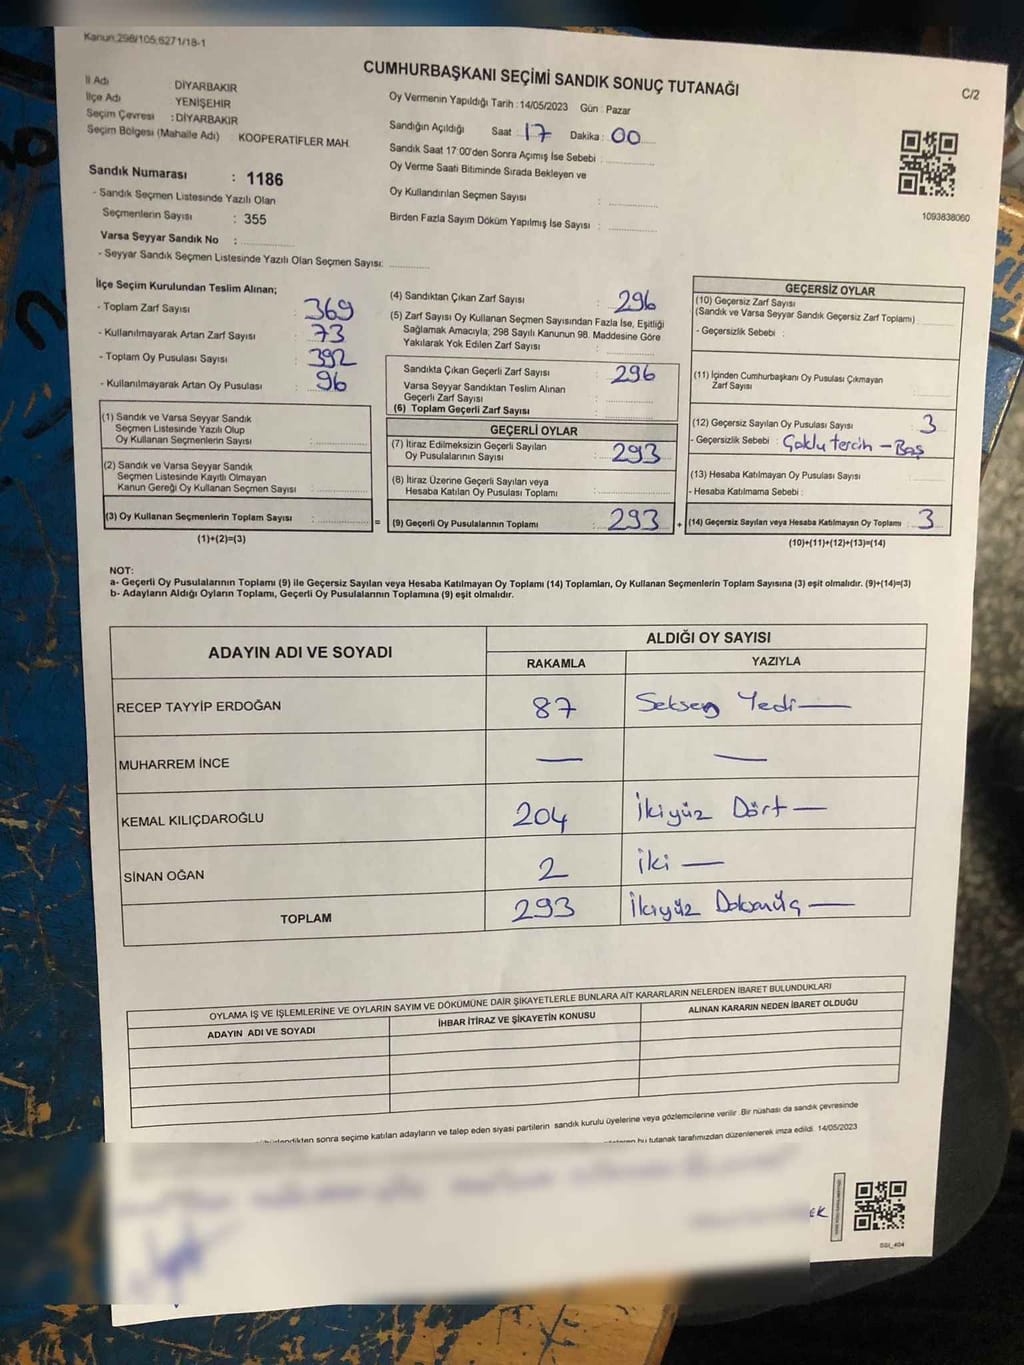 Kanun;298/105;6271/18-1
CUMHURBAŞKANI SEÇİMİ SANDIK SONUÇ TUTANAĞI
C/2
İl Adı : DİYARBAKIR
İlçe Adı : YENİŞEHİR
Seçim Çevresi : DİYARBAKIR
Seçim Bölgesi (Mahalle Adı) : KOOPERATİFLER MAH.
Sandık Numarası : 1186
- Sandık Seçmen Listesinde Yazılı Olan
Seçmenlerin Sayısı : 355
Varsa Seyyar Sandık No :
- Seyyar Sandık Seçmen Listesinde Yazılı Olan Seçmen Sayısı:
Oy Vermenin Yapıldığı Tarih : 14/05/2023 Gün : Pazar
Sandığın Açıldığı Saat : 17 Dakika : 00
Sandık Saat 17:00'den Sonra Açımış İse Sebebi :
Oy Verme Saati Bitiminde Sırada Bekleyen ve
Oy Kullandırılan Seçmen Sayısı :
Birden Fazla Sayım Döküm Yapılmış İse Sayısı :
1093838060
İlçe Seçim Kurulundan Teslim Alınan;
- Toplam Zarf Sayısı : 369
- Kullanılmayarak Artan Zarf Sayısı : 73
- Toplam Oy Pusulası Sayısı : 392
- Kullanılmayarak Artan Oy Pusulası : 96
(1) Sandık ve Varsa Seyyar Sandık
Seçmen Listesinde Yazılı Olup
Oy Kullanan Seçmenlerin Sayısı :
(2) Sandık ve Varsa Seyyar Sandık
Seçmen Listesinde Kayıtlı Olmayan
Kanun Gereği Oy Kullanan Seçmen Sayısı :
(3) Oy Kullanan Seçmenlerin Toplam Sayısı :
(1)+(2)=(3)
=
(4) Sandıktan Çıkan Zarf Sayısı : 296
(5) Zarf Sayısı Oy Kullanan Seçmen Sayısından Fazla İse, Eşitliği
Sağlamak Amacıyla; 298 Sayılı Kanunun 98. Maddesine Göre
Yakılarak Yok Edilen Zarf Sayısı :
Sandıkta Çıkan Geçerli Zarf Sayısı : 296
Varsa Seyyar Sandıktan Teslim Alınan
Geçerli Zarf Sayısı :
(6) Toplam Geçerli Zarf Sayısı :
GEÇERLİ OYLAR
(7) İtiraz Edilmeksizin Geçerli Sayılan
Oy Pusulalarının Sayısı : 293
(8) İtiraz Üzerine Geçerli Sayılan veya
Hesaba Katılan Oy Pusulası Toplamı :
(9) Geçerli Oy Pusulalarının Toplamı : 293
+
GEÇERSİZ OYLAR
(10) Geçersiz Zarf Sayısı
(Sandık ve Varsa Seyyar Sandık Geçersiz Zarf Toplamı)
- Geçersizlik Sebebi :
(11) İçinden Cumhurbaşkanı Oy Pusulası Çıkmayan
Zarf Sayısı :
(12) Geçersiz Sayılan Oy Pusulası Sayısı : 3
- Geçersizlik Sebebi : Çoklu tercih - Boş
(13) Hesaba Katılmayan Oy Pusulası Sayısı :
- Hesaba Katılmama Sebebi :
(14) Geçersiz Sayılan veya Hesaba Katılmayan Oy Toplamı : 3
(10)+(11)+(12)+(13)=(14)
NOT:
a- Geçerli Oy Pusulalarının Toplamı (9) ile Geçersiz Sayılan veya Hesaba Katılmayan Oy Toplamı (14) Toplamları, Oy Kullanan Seçmenlerin Toplam Sayısına (3) eşit olmalıdır. (9)+(14)=(3)
b- Adayların Aldığı Oyların Toplamı, Geçerli Oy Pusulalarının Toplamına (9) eşit olmalıdır.
ADAYIN ADI VE SOYADI
ALDIĞI OY SAYISI
RAKAMLA YAZIYLA
RECEP TAYYİP ERDOĞAN 87 Seksen Yedi —
MUHARREM İNCE — —
KEMAL KILIÇDAROĞLU 204 İkiyüz Dört —
SİNAN OĞAN 2 iki —
TOPLAM 293 İkiyüz Doksanüç —
OYLAMA İŞ VE İŞLEMLERİNE VE OYLARIN SAYIM VE DÖKÜMÜNE DAİR ŞİKAYETLERLE BUNLARA AİT KARARLARIN NELERDEN İBARET BULUNDUKLARI
ADAYIN ADI VE SOYADI İHBAR İTİRAZ VE ŞİKAYETİN KONUSU ALINAN KARARIN NEDEN İBARET OLDUĞU
sonra seçime katılan adayların ve talep eden siyasi partilerin sandık kurulu üyelerine veya gözlemcilerine verilir. Bir nüshası da sandık çevresinde
bu tutanak tarafımızdan düzenlenerek imza edildi. 14/05/2023
EK